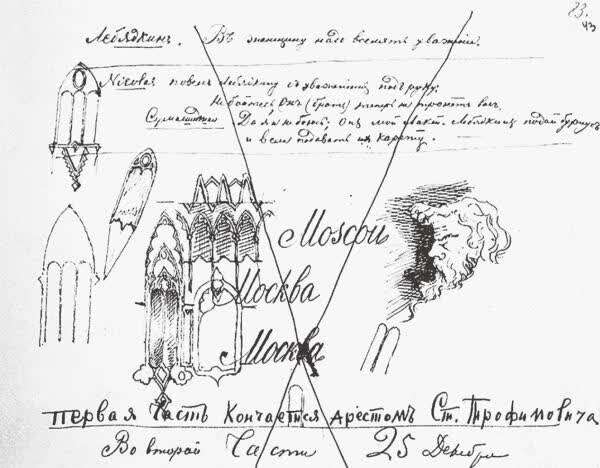 23.
43
Лебядкинъ. Въ женщину надо вселять уваженіе.
Nicolas повелъ Лебядкину съ уваженіемъ подъ руку:
Не бойтесь, онъ (братъ) теперь не тронетъ васъ.
Сумасшедшая Да я не боюсь, онъ мой лакей. Лебядкинъ подай бурнусъ
и вели подавать карету.
Moscou
Москва
Москва
Первая Часть Кончается арестомъ Ст. Трофимовича
Во второй Части 25 Декабря